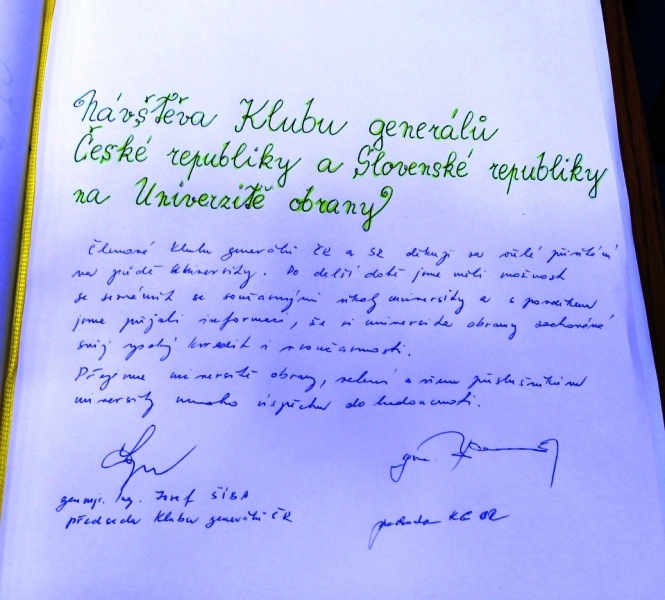 Návštěva Klubu generálů
České republiky a Slovenské republiky
na Univerzitě obrany
Členové Klubu generálů ČR a SR děkují za milé přivítání
na půdě University. Po delší době jsme měli možnost
se seznámit se současnými úkoly university a s potěšením
jsme přijali informaci, že si universita obrany zachovává
svůj vysoký kredit i v současnosti.
Přejeme universitě obrany, velení a všem příslušníkům
university mnoho úspěchů do budoucnosti.
gen. Ing. Josef ŠIBA
předseda Klubu generálů ČR
předseda KG SR